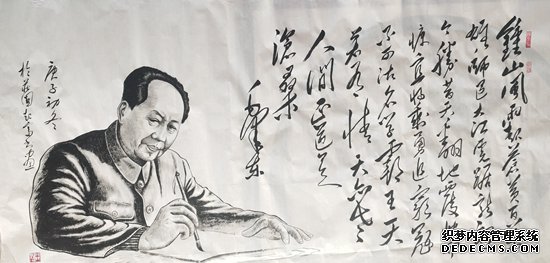 鍾山風雨起蒼黄百
雄師过大江虎踞龍
今勝昔天翻地覆慨
慷宜将剩勇追窮寇
不可沽名学霸王天
若有情天亦老
人间正道是
滄桑
毛泽东
庚子初冬
织梦内容管理系统
DEDECMS.COM